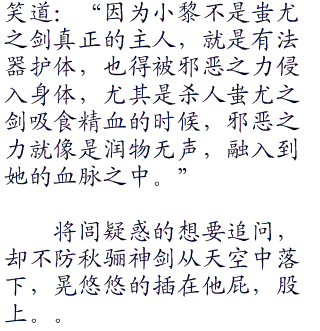 笑道：“因为小黎不是蚩尤
之剑真正的主人，就是有法
器护体，也得被邪恶之力侵
入身体，尤其是杀人蚩尤之
剑吸食精血的时候，邪恶之
力就像是润物无声，融入到
她的血脉之中。”
将闾疑惑的想要追问，
却不防秋骊神剑从天空中落
下，晃悠悠的插在他屁，股
上。。